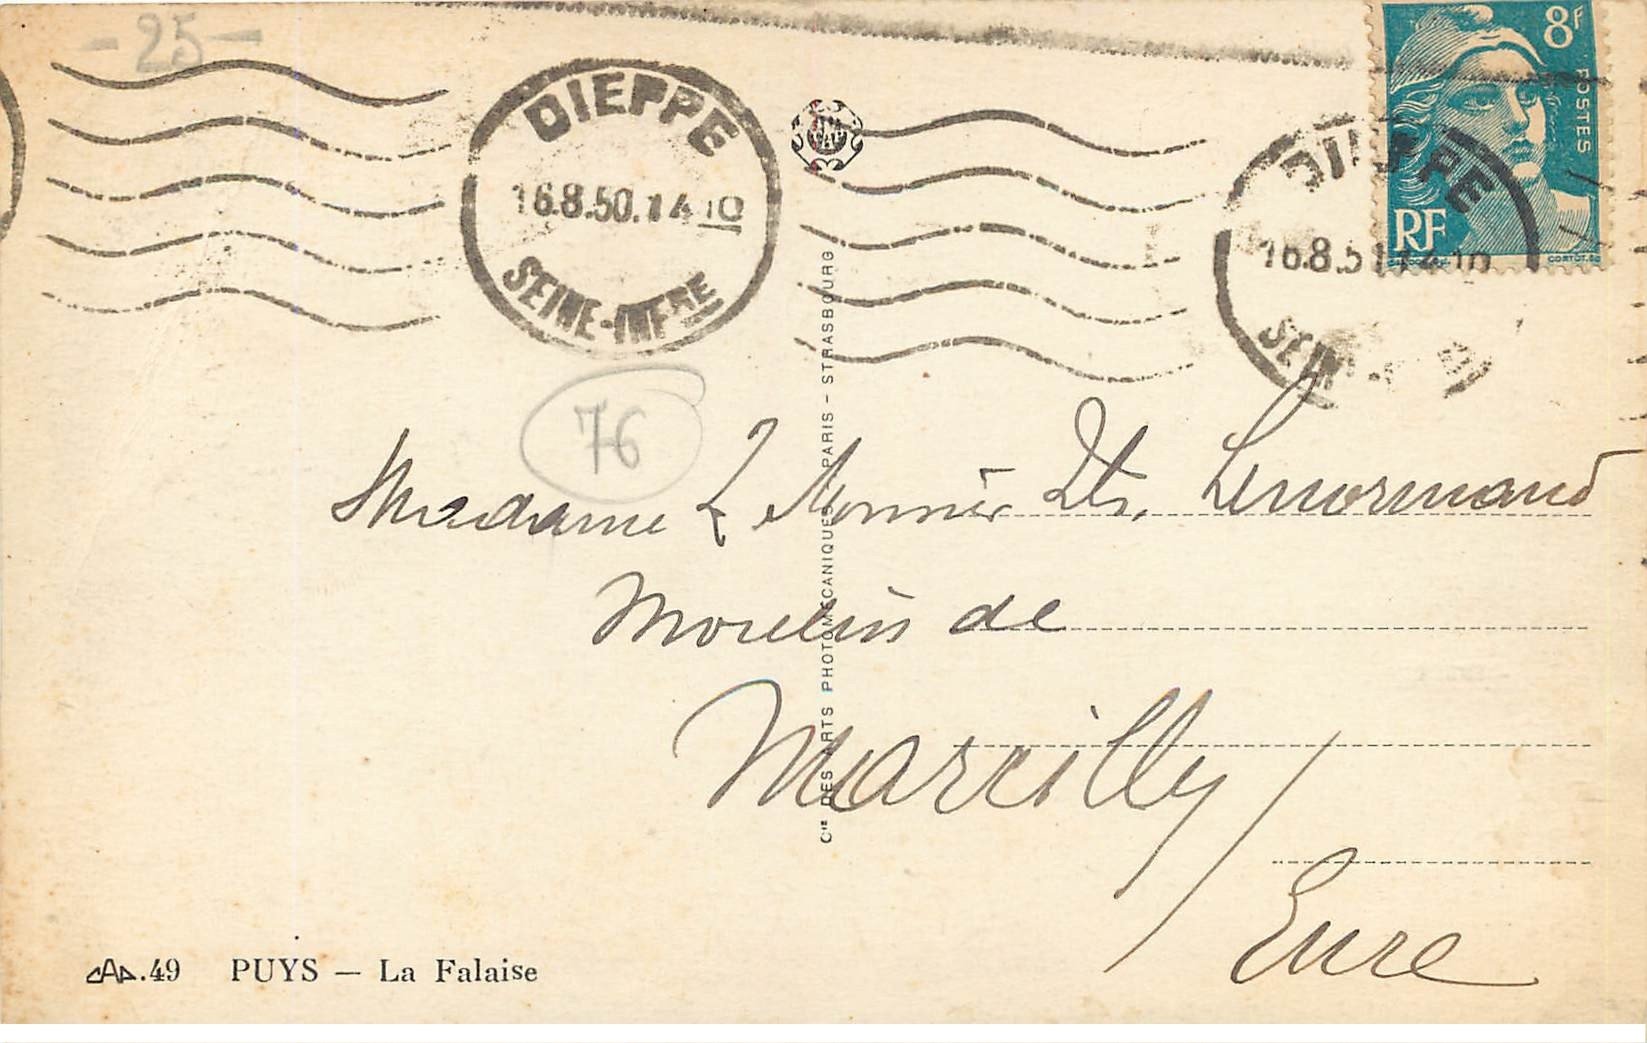 - 25 -
DIEPPE
16.8.50.14 10
SEINE-INFRE
8F
POSTES
RF
DIEPPE
16.8.5 14 10
76
Madame L Monnier
Lenormand
Moulin de
Marcilly /
Eure
Cie DES ARTS PHOTOMÉCANIQUES PARIS - STRASBOURG
CAP.49 PUYS — La Falaise